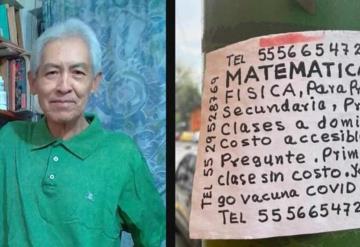 TEL 555665472
MATEMATICA
FISICA, Para Pr
Secundaria, Pr
Clases a domi
Costo accesib
Pregunte. Prim
clase sin costo. Te
go vacuna COVID
TEL 55566547
TEL 5529528769